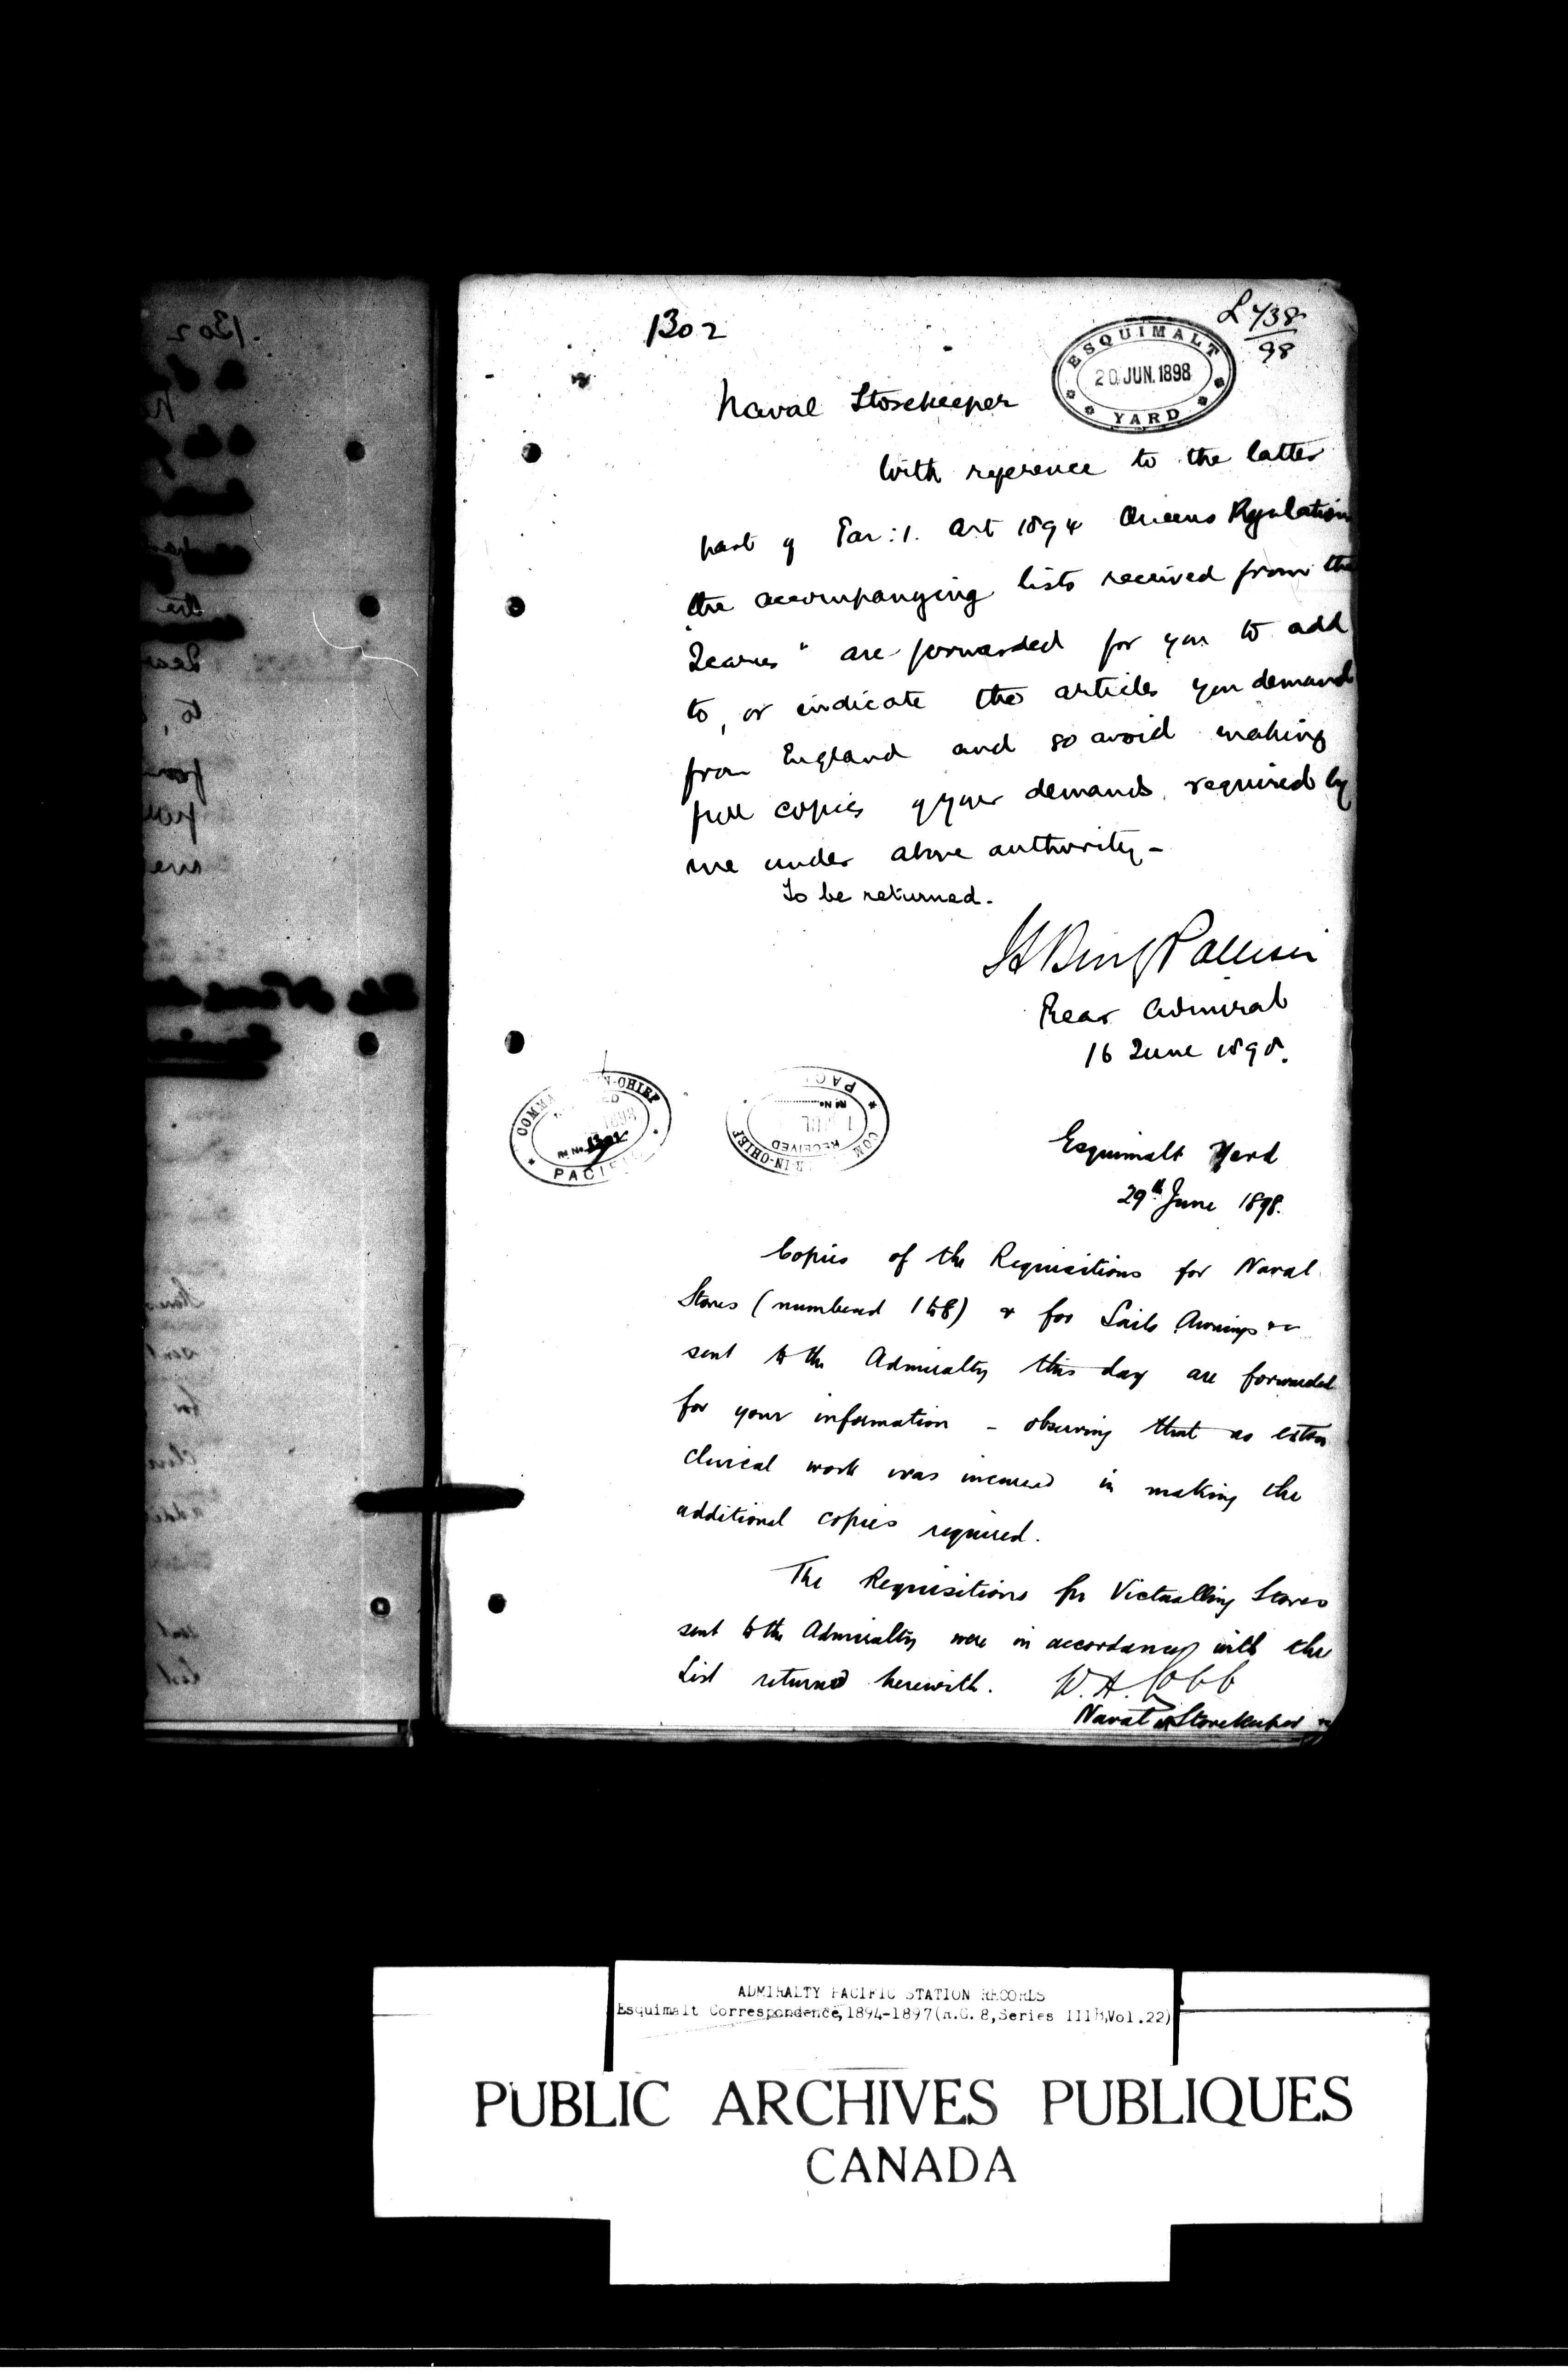 1302
L 738/98
ESQUIMALT
20 JUN. 1898
YARD
Naval Storekeeper
With reference to the latter
part of Par: 1. Art 1894 Queens Regulation
the accompanying lists received from the
"Icarus" are forwarded for you to add
to, or indicate the articles you demand
from England and so avoid making
full copies of your demands required by
me under above authority -
To be returned.
Rear Admiral
16 June 1898.
COMM N-CHIEF
Rl No. 1302
PACIFIC
COM R-IN-CHIEF
RECEIVED
Rl No.
PACI
Esquimalt Yard
29th June 1898.
Copies of the Requisitions for Naval
Stores (numbered 1 to 8) & for Sails Awnings &c
sent to the Admiralty this day are forwarded
for your information - observing that no extra
clerical work was incurred in making the
additional copies required.
The Requisitions for Victualling Stores
sent to the Admiralty were in accordance with the
List returned herewith. W. H. Cobb
Naval Storekeeper
ADMIRALTY PACIFIC STATION RECORDS
Esquimalt Correspondence, 1894-1897 (R.G. 8, Series III B, Vol. 22)
PUBLIC ARCHIVES PUBLIQUES
CANADA